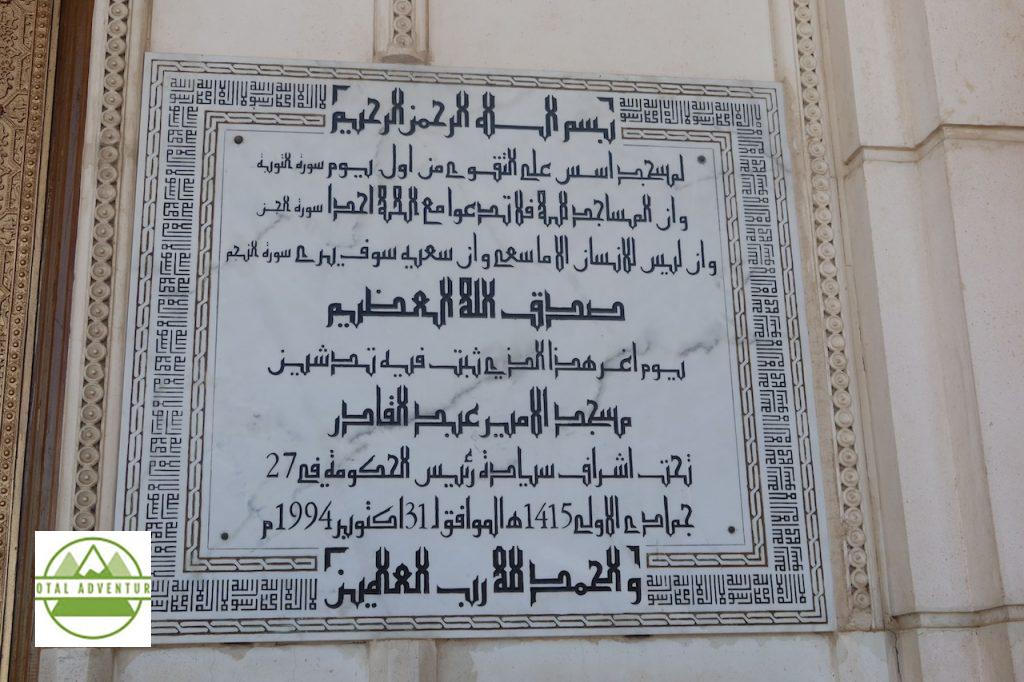 بسم الله الرحمن الرحيم
لمسجد اسس على التقوى من اول يوم سورة التوبة
وان المساجد لله فلا تدعوا مع الله احدا سورة الجن
وان ليس للانسان الا ما سعى وان سعيه سوف يرى سورة النجم
صدق الله العظيم
يوم اغر هذا الذي ثبت فيه تدشين
مسجد الامير عبد القادر
تحت اشراف سيادة رئيس الحكومة في 27
جمادى الاولى 1415ه الموافق ل 31 اكتوبر 1994م
والحمد لله رب العالمين
OTAL ADVENTUR